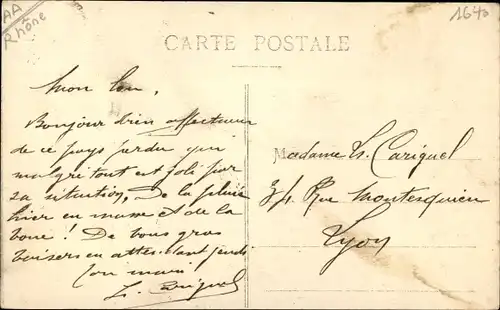 AA
Rhône
1640
CARTE POSTALE
Mon
Bonjour bien affectueux
de ce pays perdu qui
malgré tout est joli par
sa situation, De la pluie
hier en masse et de la
boue ! De bons gros
baisers en attendant jeudi
Ton mari
Madame L. Cariguel
Rue Montesquieu
Lyon